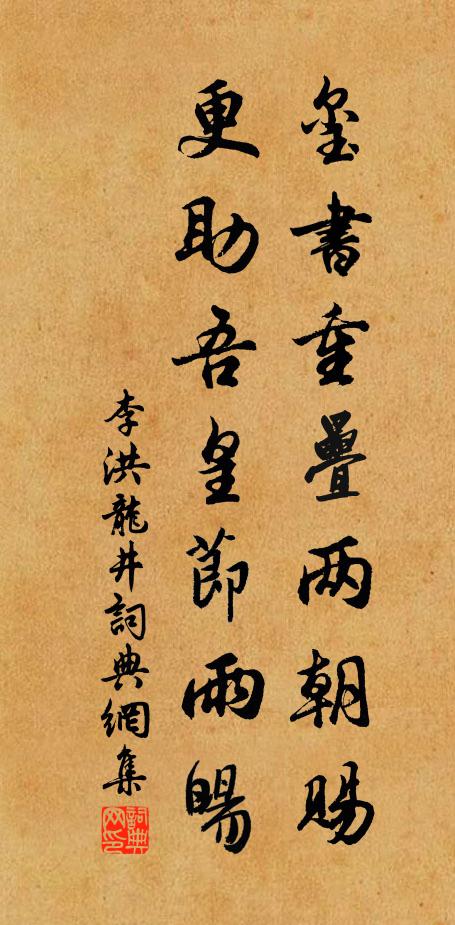 壐書重疊两朝賜
更助吾皇節雨暘
李洪龍井詞典網集
詞典网印